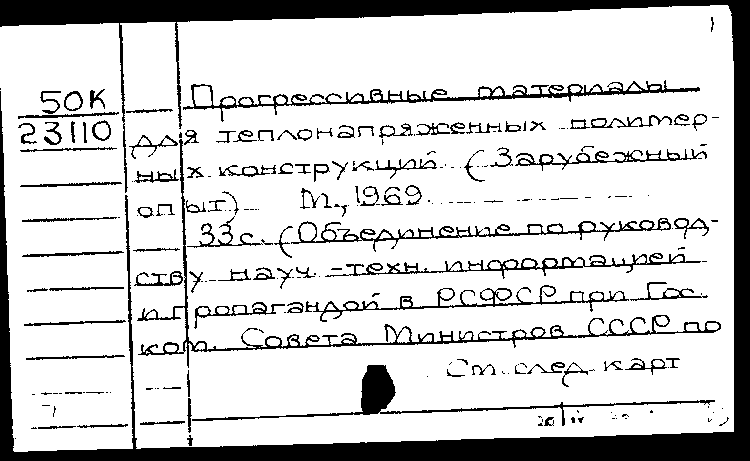 1
50К
23110
Прогрессивные материалы
для теплонапряженных полимер-
ных конструкций (Зарубежный
опыт) М., 1969
33с. (Объединение по руковод-
ству науч.-техн. информацией
и пропагандой в РСФСР при Гос.
ком. Совета Министров СССР по
См. след. карт